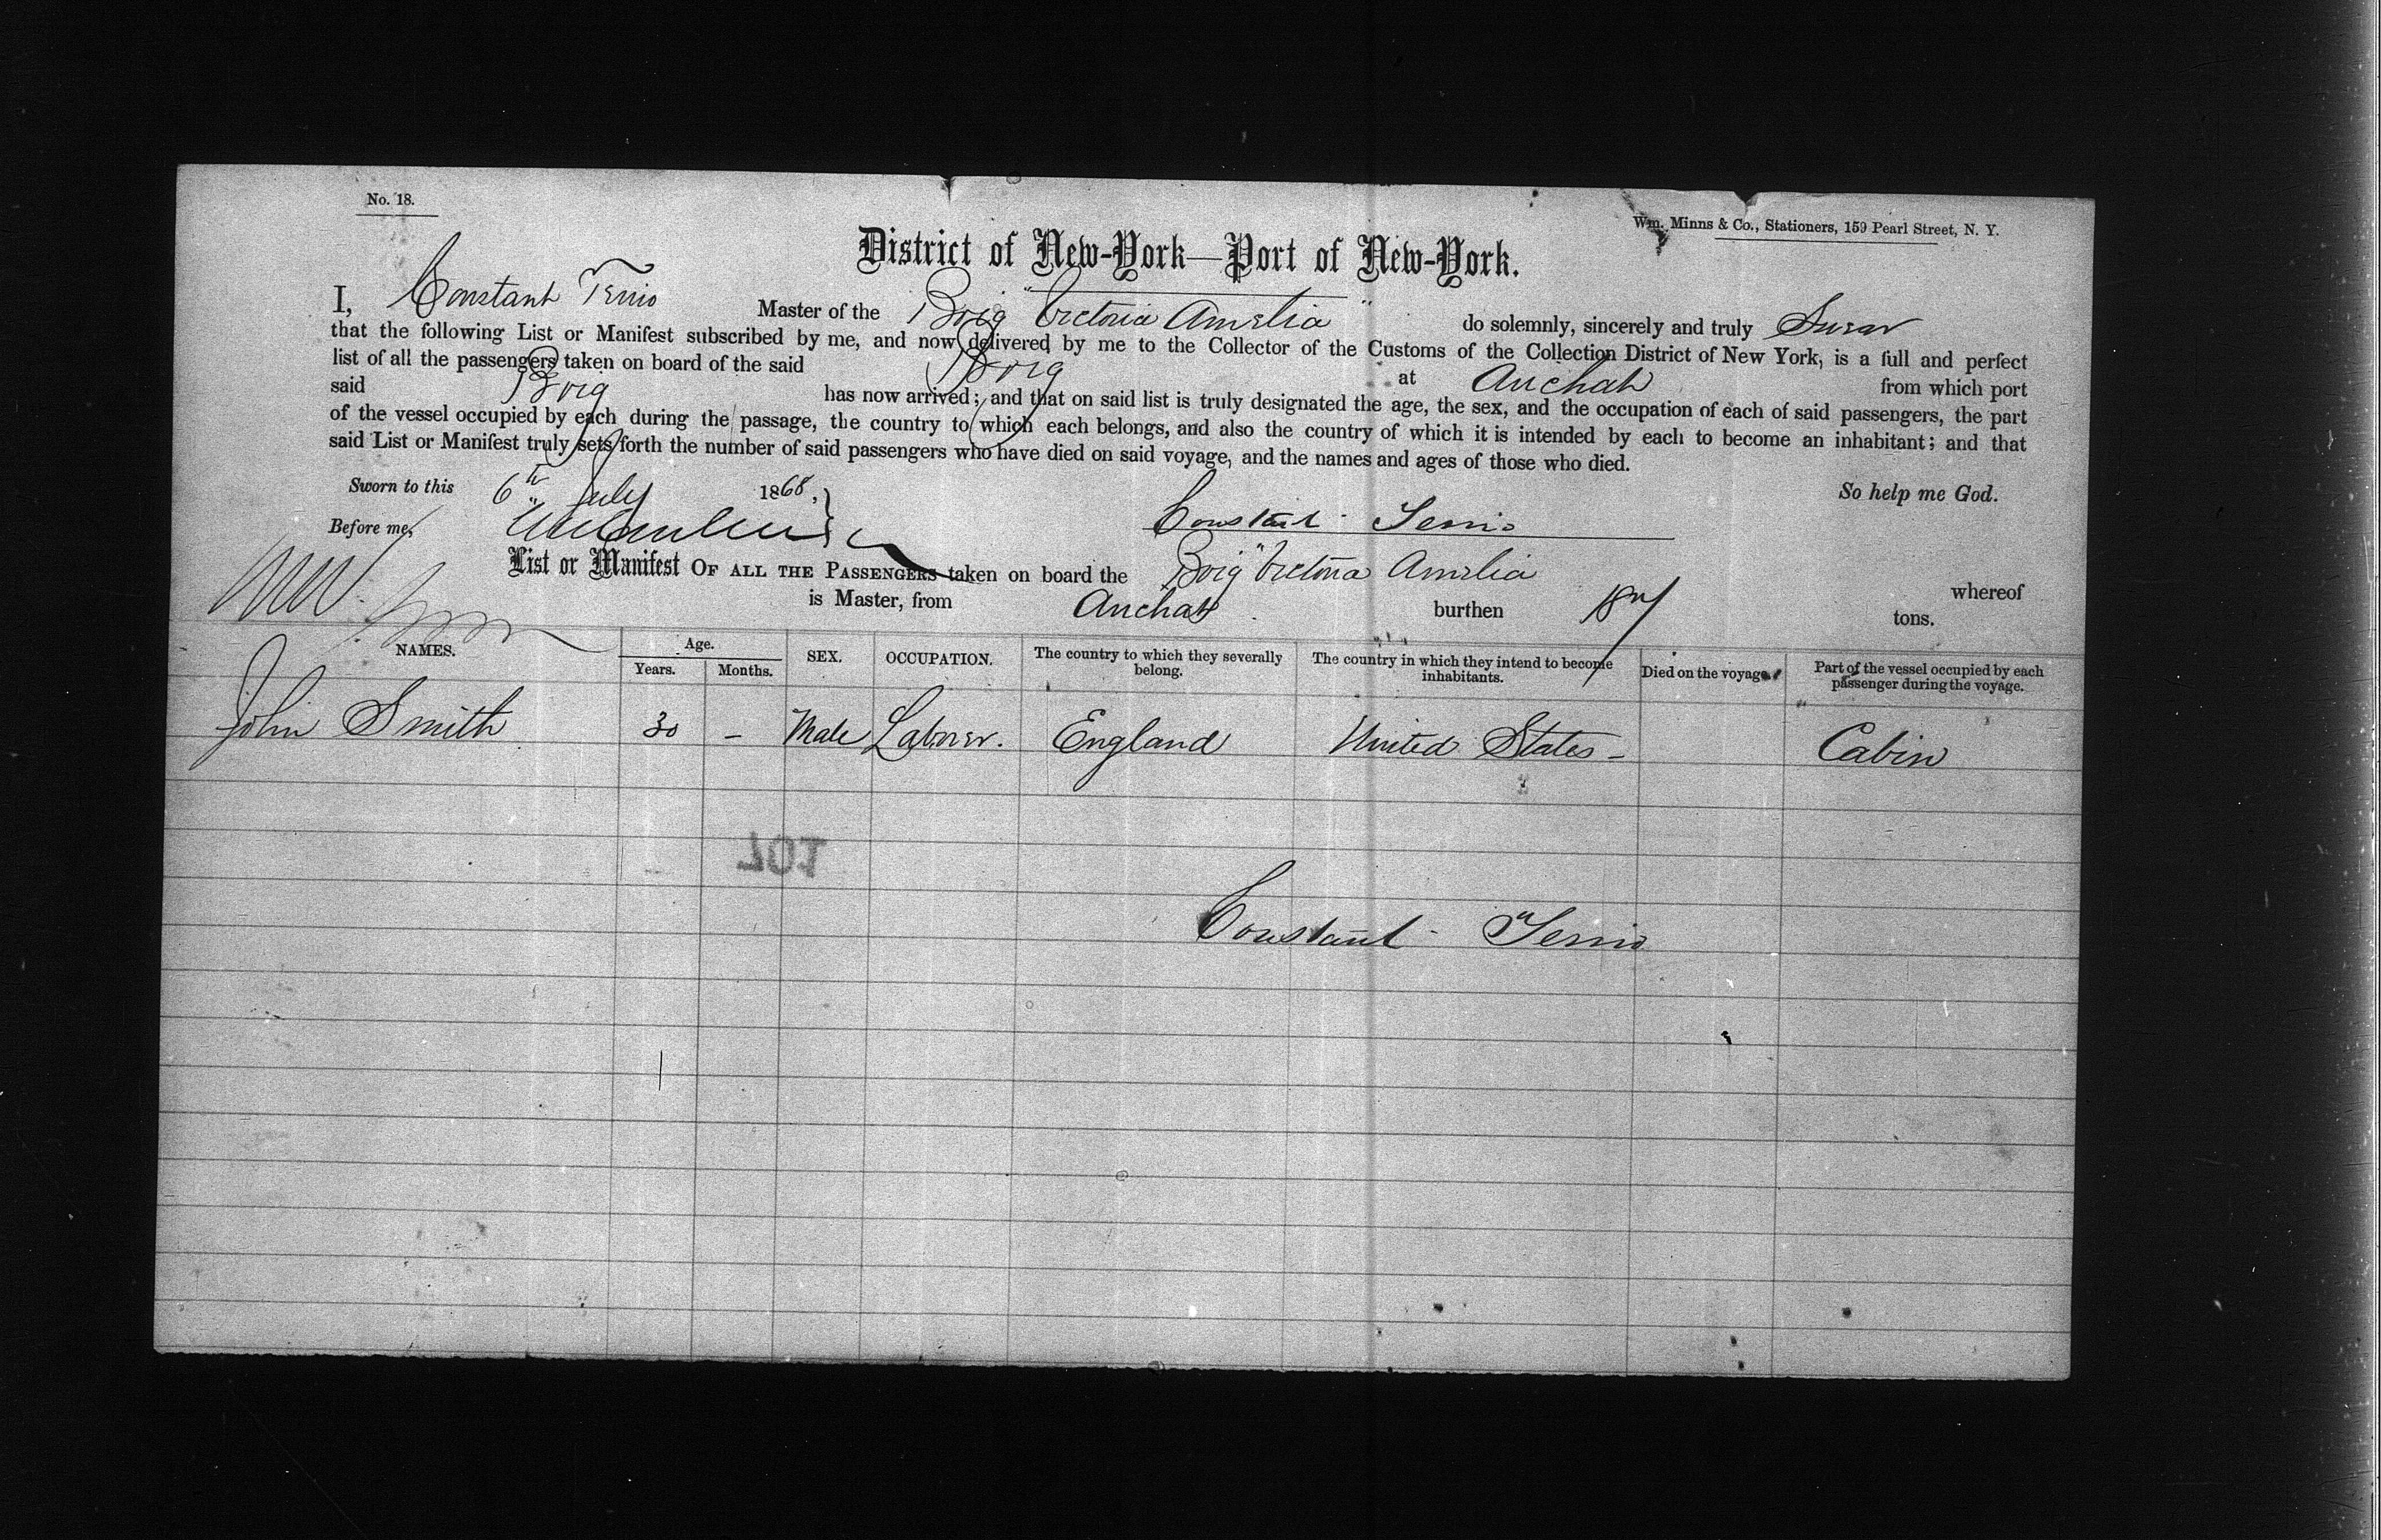 No. 18.
Wm. Minns & Co., Stationers, 159 Pearl Street, N. Y.
District of New-York—Port of New-York.
I, Constant Terrio Master of the Brig "Victoria Amelia" do solemnly, sincerely and truly Swear
that the following List or Manifest subscribed by me, and now delivered by me to the Collector of the Customs of the Collection District of New York, is a full and perfect
list of all the passengers taken on board of the said Brig at Arichat from which port
said Brig has now arrived; and that on said list is truly designated the age, the sex, and the occupation of each of said passengers, the part
of the vessel occupied by each during the passage, the country to which each belongs, and also the country of which it is intended by each to become an inhabitant; and that
said List or Manifest truly sets forth the number of said passengers who have died on said voyage, and the names and ages of those who died.
Sworn to this 6th July 1868, So help me God.
Before me, Constant Terrio
List or Manifest OF ALL THE PASSENGERS taken on board the Brig "Victoria Amelia whereof
is Master, from Arichat burthen 187 tons.
NAMES. Age. Years. Months. SEX. OCCUPATION. The country to which they severally belong. The country in which they intend to become inhabitants. Died on the voyage. Part of the vessel occupied by each passenger during the voyage.
John Smith 30 - Male Laborer. England United States - Cabin
107
Constant Terrio